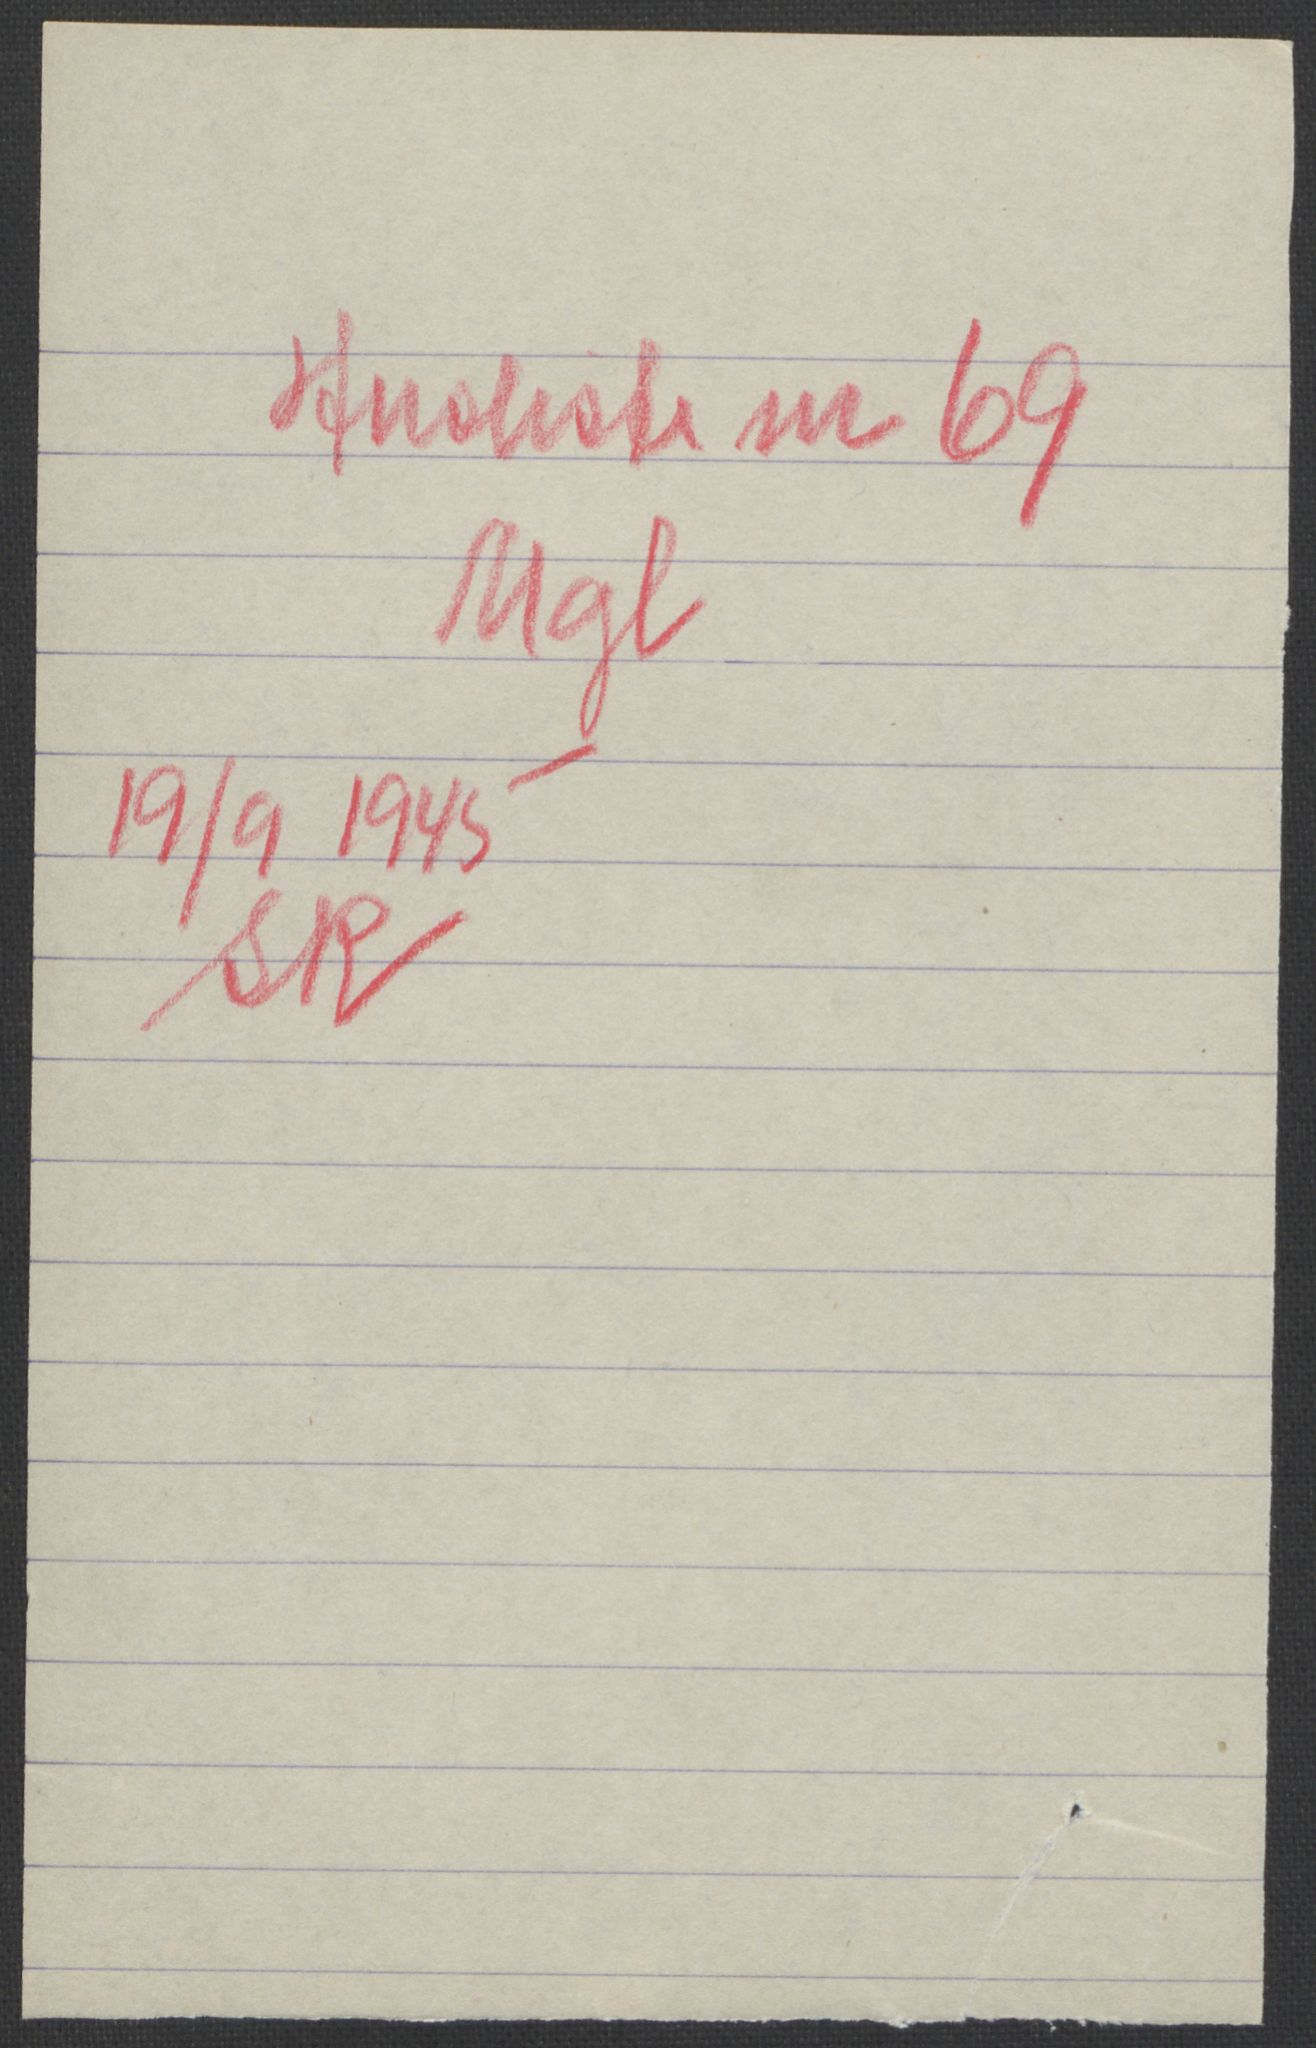 Husliste nr 69
Mgl
19/9 1945
SR